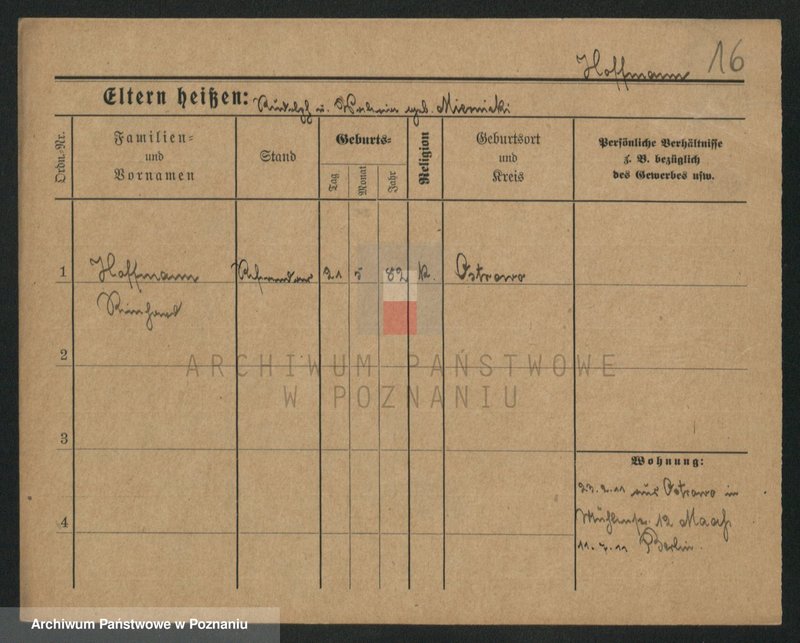 Hoffmann 16
Eltern heißen: Rudolph u. Valeria geb. Miemicki
Ordn.-Nr.
Familien-
und
Vornamen
Stand
Geburts-
Tag
Monat
Jahr
Religion
Geburtsort
und
Kreis
Persönliche Verhältnisse
z. B. bezüglich
des Gewerbes usw.
1 Hoffmann Referendar 21 5 82 K. Ostrowo
Reinhard
2
ARCHIWUM PAŃSTWOWE
W POZNANIU
3
Wohnung:
23.2.11 aus Ostrowo in
4 Mühlenstr. 12
11. 11 Berlin.
Archiwum Państwowe w Poznaniu